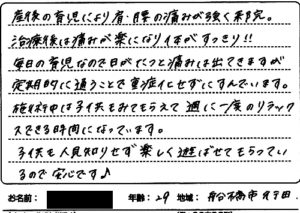 産後の育児により肩・腰の痛みが強く来院。
治療後は痛みが楽になり体がすっきり!!
毎日の育児なので日がたつと痛みは出てきますが
定期的に通うことで重症化せずにすんでいます。
施術中は子供をみてもらえて週に一度のリラック
スできる時間になっています。
子供も人見知りせず楽しく遊ばせてもらってい
るので安心です♪
お名前: 年齢: 29 地域: 船橋市